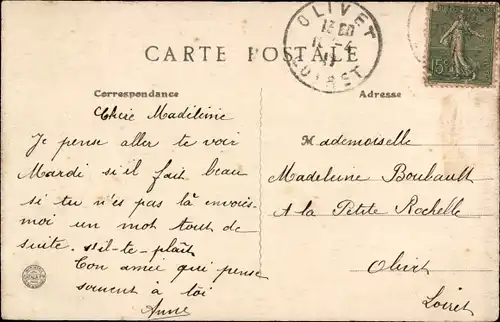 OLIVET
LOIRET
CARTE POSTALE
15c
Correspondance
Adresse
Chère Madeleine
Je pense aller te voir
Mardi si il fait beau
si tu n'es pas là envoies-
moi un mot tout de
suite. s'il-te-plaît
Ton amie qui pense
souvent à toi
Anne
Mademoiselle
Madeleine Boubault
A la Petite Rochelle
Olivet
Loiret